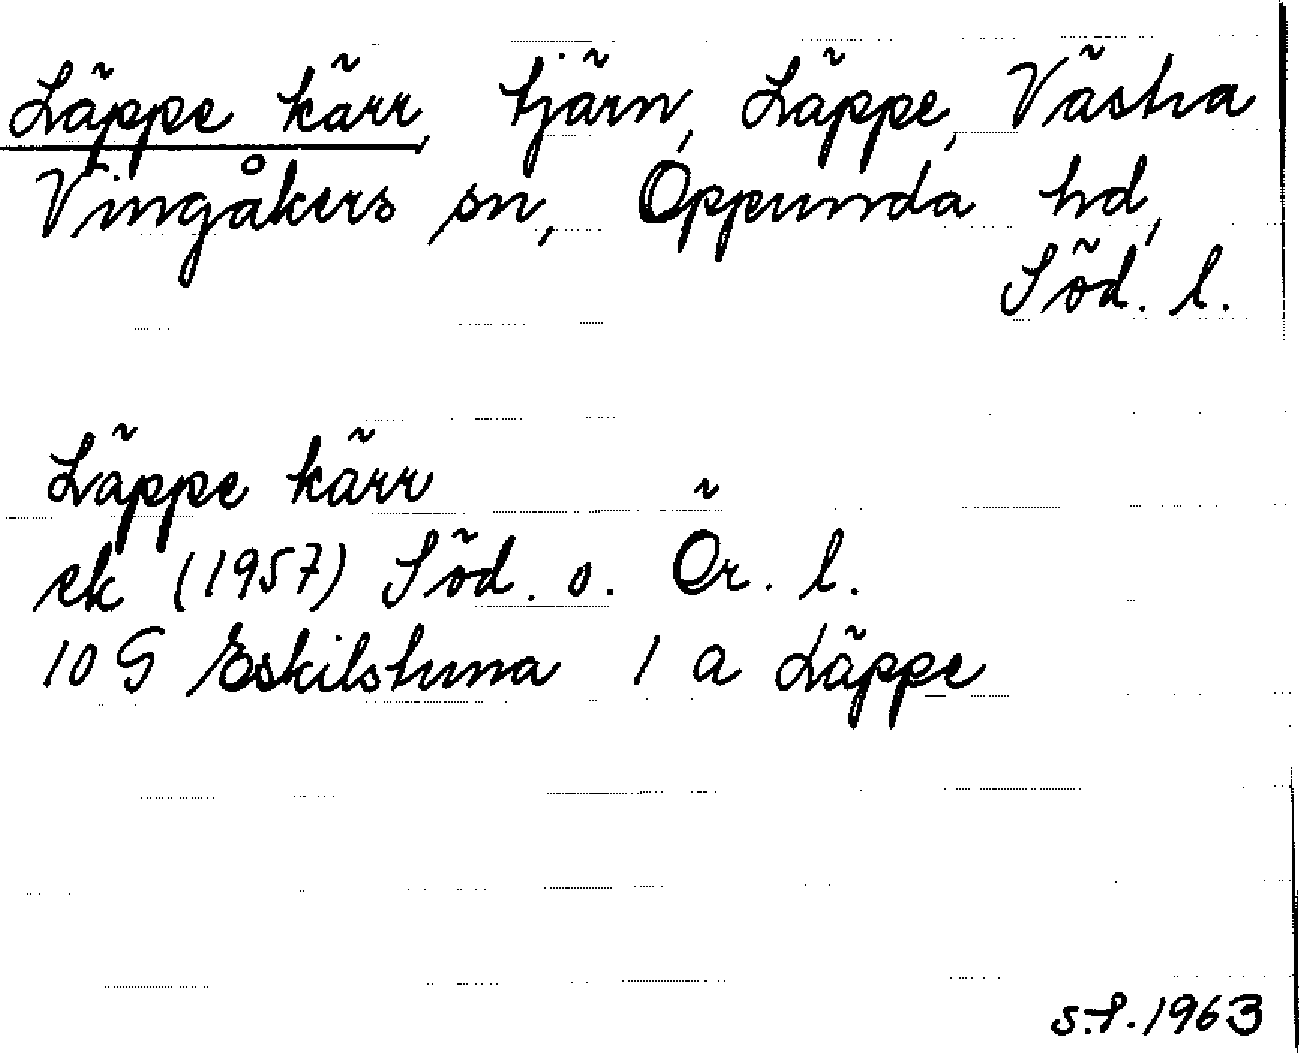 Läppe kärr, tjärn, Läppe, Västra
Vingåkers sn, Oppunda hd,
Söd. l.
Läppe kärr
ek (1957) Söd. o. Ör. l.
10 G Eskilstuna 1 a Läppe
s.f. 1963